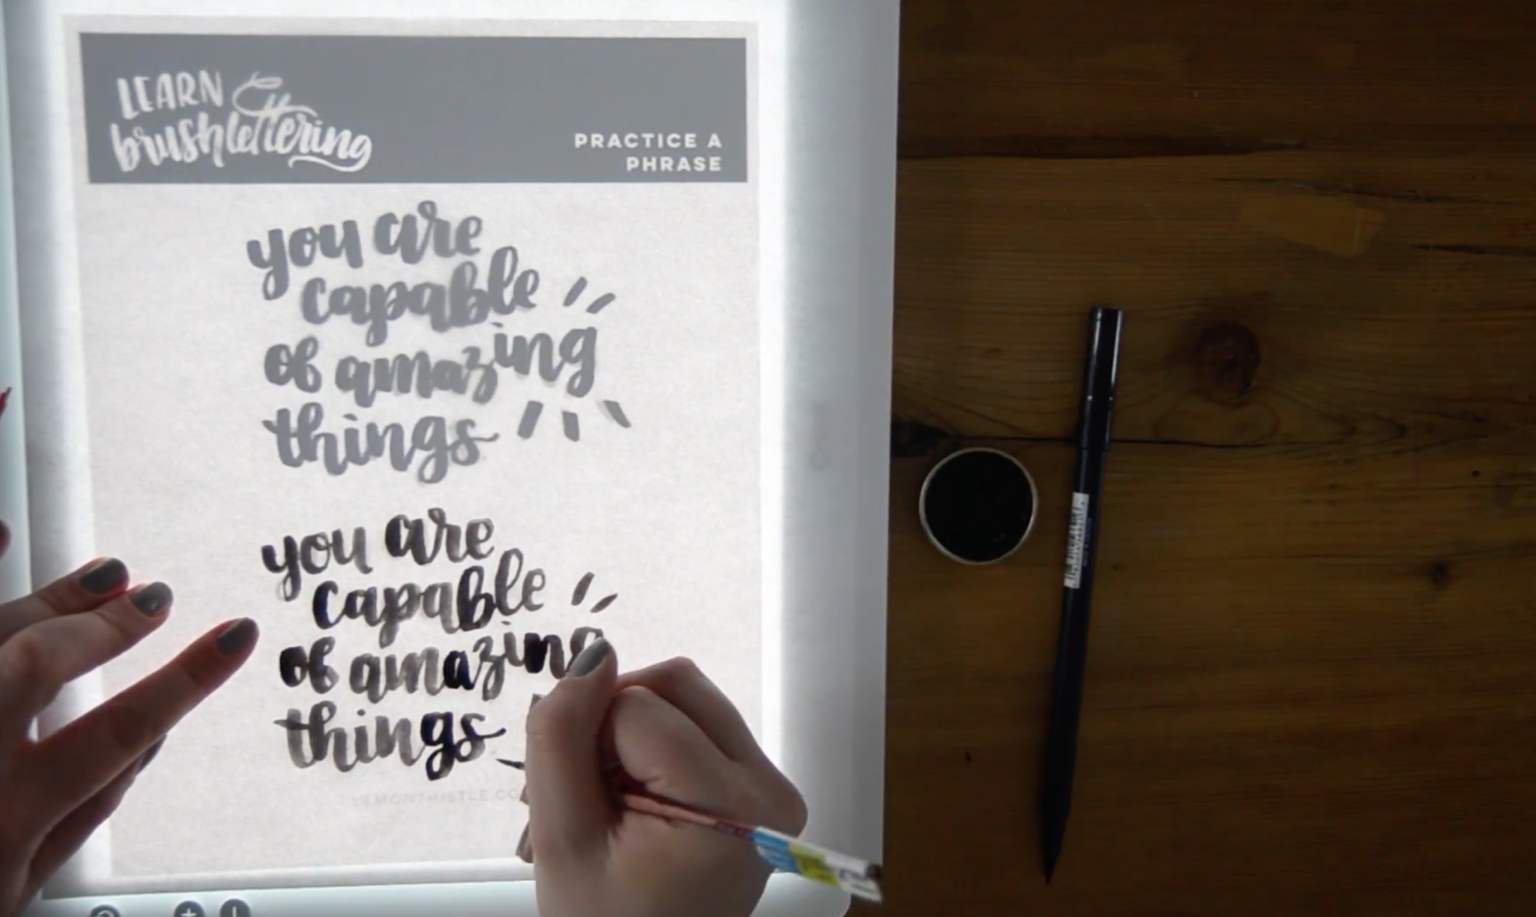 LEARN
brushlettering
PRACTICE A
PHRASE
you are
capable
of amazing
things
you are
capable
of amazing
things
LEMONTHISTLE.CO